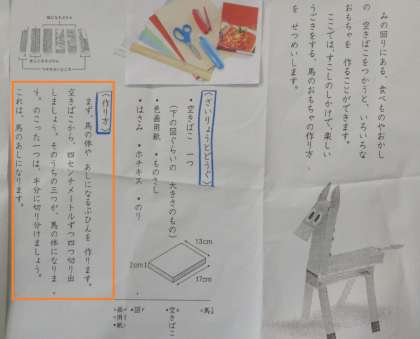 みの回りにある、食べものやおかし
の 空きばこをつかうと、いろいろな
おもちゃを 作ることができます。
ここでは、すこしのしかけで、楽しい
うごきをする、馬のおもちゃの作り方
を せつめいします。
〈ざいりょうとどうぐ〉
・空きばこ 一つ
(下の図ぐらいの 大きさのもの)
・色画用紙 ・ものさし
・はさみ ・ホチキス ・のり
13cm
17cm
2cm
馬
空きばこ
図
画用紙
〈作り方〉
まず、馬の体や あしになるぶひんを 作ります。
空きばこから、四センチメートルずつ四つ切り出
しましょう。そのうちの三つが、馬の体になりま
す。のこった一つは、半分に切り分けましょう。
これは、馬のあしになります。